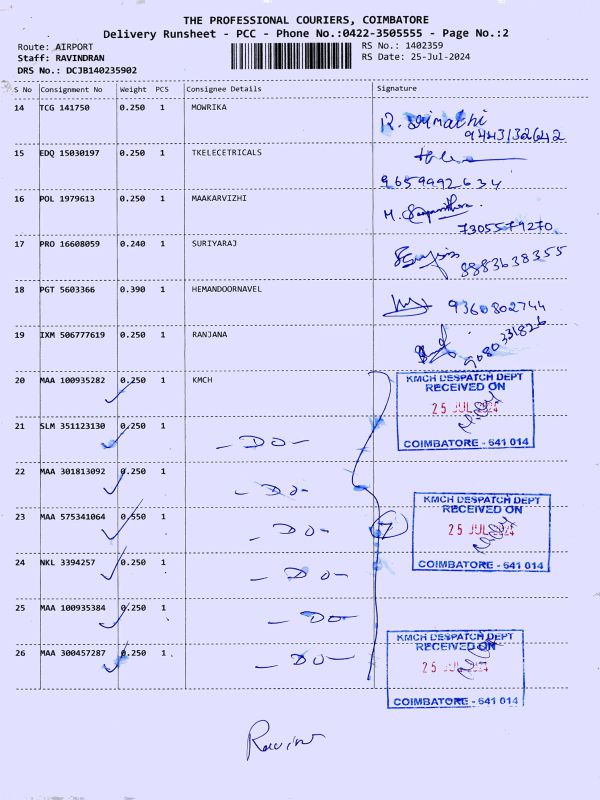 THE PROFESSIONAL COURIERS, COIMBATORE
Delivery Runsheet - PCC - Phone No.:0422-3505555 - Page No.:2
Route: AIRPORT RS No.: 1402359
Staff: RAVINDRAN RS Date: 25-Jul-2024
DRS No.: DCJB140235902
S No Consignment No Weight PCS Consignee Details Signature
14 TCG 141750 0.250 1 MOWRIKA R. Srimathi
9443132642
15 EDQ 15030197 0.250 1 TKELECETRICALS
9659992634
16 POL 1979613 0.250 1 MAAKARVIZHI M.
7305579270
17 PRO 16608059 0.240 1 SURIYARAJ
8883638355
18 PGT 5603366 0.390 1 HEMANDOORNAVEL 9360802744
19 IXM 506777619 0.250 1 RANJANA 9080331826
20 MAA 100935282 0.250 1 KMCH
KMCH DESPATCH DEPT
RECEIVED ON
25 JUL 2024
COIMBATORE - 641 014
21 SLM 351123130 0.250 1 - DO -
22 MAA 301813092 0.250 1 - DO -
KMCH DESPATCH DEPT
RECEIVED ON
25 JUL 2024
COIMBATORE - 641 014
23 MAA 575341064 0.550 1 - DO - 7
24 NKL 3394257 0.250 1 - DO -
25 MAA 100935384 0.250 1 - DO -
26 MAA 300457287 0.250 1 - DO -
KMCH DESPATCH DEPT
RECEIVED ON
25 JUL 2024
COIMBATORE - 641 014